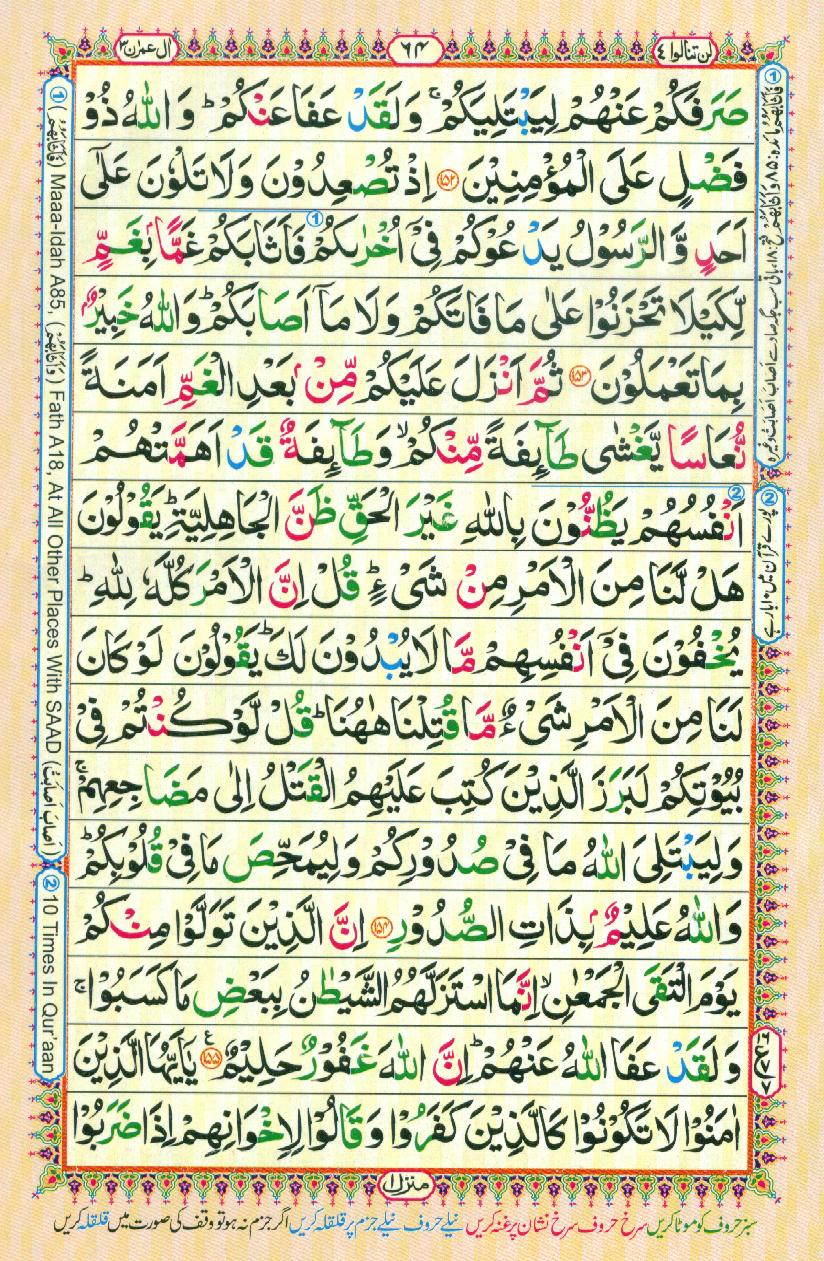 لن تنالوا ٤
٦٤
ال عمرٰن ٣
صَرَفَكُمْ عَنْهُمْ لِيَبْتَلِيَكُمْ ۚ وَ لَقَدْ عَفَا عَنْكُمْ ؕ وَ اللّٰهُ ذُوْ
فَضْلٍ عَلَی الْمُؤْمِنِيْنَ ﴿۱۵۲﴾ اِذْ تُصْعِدُوْنَ وَ لَا تَلْوٗنَ عَلٰۤی
اَحَدٍ وَّ الرَّسُوْلُ يَدْعُوْكُمْ فِیْۤ اُخْرٰىكُمْ فَاَثَابَكُمْ ① غَمًّۢا بِغَمٍّ
لِّكَيْلَا تَحْزَنُوْا عَلٰی مَا فَاتَكُمْ وَ لَا مَاۤ اَصَابَكُمْ ؕ وَ اللّٰهُ خَبِيْرٌۢ
بِمَا تَعْمَلُوْنَ ﴿۱۵۳﴾ ثُمَّ اَنْزَلَ عَلَيْكُمْ مِّنْۢ بَعْدِ الْغَمِّ اَمَنَةً
نُّعَاسًا يَّغْشٰی طَآئِفَةً مِّنْكُمْ ۙ وَ طَآئِفَةٌ قَدْ اَهَمَّتْهُمْ
اَنْفُسُهُمْ ② يَظُنُّوْنَ بِاللّٰهِ غَيْرَ الْحَقِّ ظَنَّ الْجَاهِلِيَّةِ ؕ يَقُوْلُوْنَ
هَلْ لَّنَا مِنَ الْاَمْرِ مِنْ شَیْءٍ ؕ قُلْ اِنَّ الْاَمْرَ كُلَّهٗ لِلّٰهِ ؕ
يُخْفُوْنَ فِیْۤ اَنْفُسِهِمْ مَّا لَا يُبْدُوْنَ لَكَ ؕ يَقُوْلُوْنَ لَوْ كَانَ
لَنَا مِنَ الْاَمْرِ شَیْءٌ مَّا قُتِلْنَا هٰهُنَا ؕ قُلْ لَّوْ كُنْتُمْ فِیْ
بُيُوْتِكُمْ لَبَرَزَ الَّذِيْنَ كُتِبَ عَلَيْهِمُ الْقَتْلُ اِلٰی مَضَاجِعِهِمْ ۚ
وَ لِيَبْتَلِیَ اللّٰهُ مَا فِیْ صُدُوْرِكُمْ وَ لِيُمَحِّصَ مَا فِیْ قُلُوْبِكُمْ ؕ
وَ اللّٰهُ عَلِيْمٌۢ بِذَاتِ الصُّدُوْرِ ﴿۱۵۴﴾ اِنَّ الَّذِيْنَ تَوَلَّوْا مِنْكُمْ
يَوْمَ الْتَقَی الْجَمْعٰنِ ۙ اِنَّمَا اسْتَزَلَّهُمُ الشَّيْطٰنُ بِبَعْضِ مَا كَسَبُوْا ۚ
وَ لَقَدْ عَفَا اللّٰهُ عَنْهُمْ ؕ اِنَّ اللّٰهَ غَفُوْرٌ حَلِيْمٌ ﴿۱۵۵﴾ ع يٰۤاَيُّهَا الَّذِيْنَ
اٰمَنُوْا لَا تَكُوْنُوْا كَالَّذِيْنَ كَفَرُوْا وَ قَالُوْا لِاِخْوَانِهِمْ اِذَا ضَرَبُوْا
منزل ۱
سبز حروف کو موٹا کریں سرخ حروف سرخ نشان پر غنہ کریں نیلے حروف نیلے جزم پر قلقلہ کریں اگر جزم نہ ہو تو وقف کی صورت میں قلقلہ کریں
① (فَاَثَابَهُمُ) Maaa-Idah A85, (وَاَثَابَهُمْ) Fath A18, At All Other Places With SAAD (اَصَابَ اَصَابَتْ)
② 10 Times In Qur'aan
② پورے قرآن میں ۱۰ بار ہے